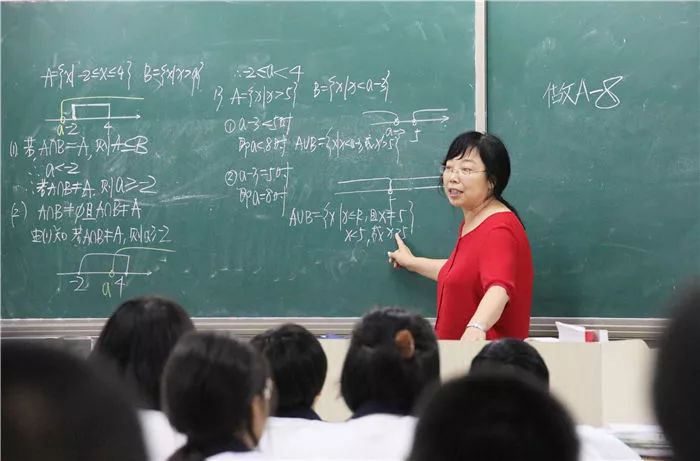 A={x|-2≤x≤4} B={x|x>a}
a -2 4
(1) 若A∩B=A,则A⊆B
∴a<-2
∴若A∩B≠A,则a≥-2
(2) A∩B≠∅且A∩B≠A
由(1)知 若A∩B≠A,则a≥-2
-2 a 4
∴-2≤a<4
A={x|x>5} B={x|x<a-3}
① a-3<5时
即a<8时 A∪B={x|x<a-3,或x>5}
② a-3=5时
即a=8时
a-3 5
5
A∪B={x|x∈R,且x≠5}
x<5,或x>5
A-8